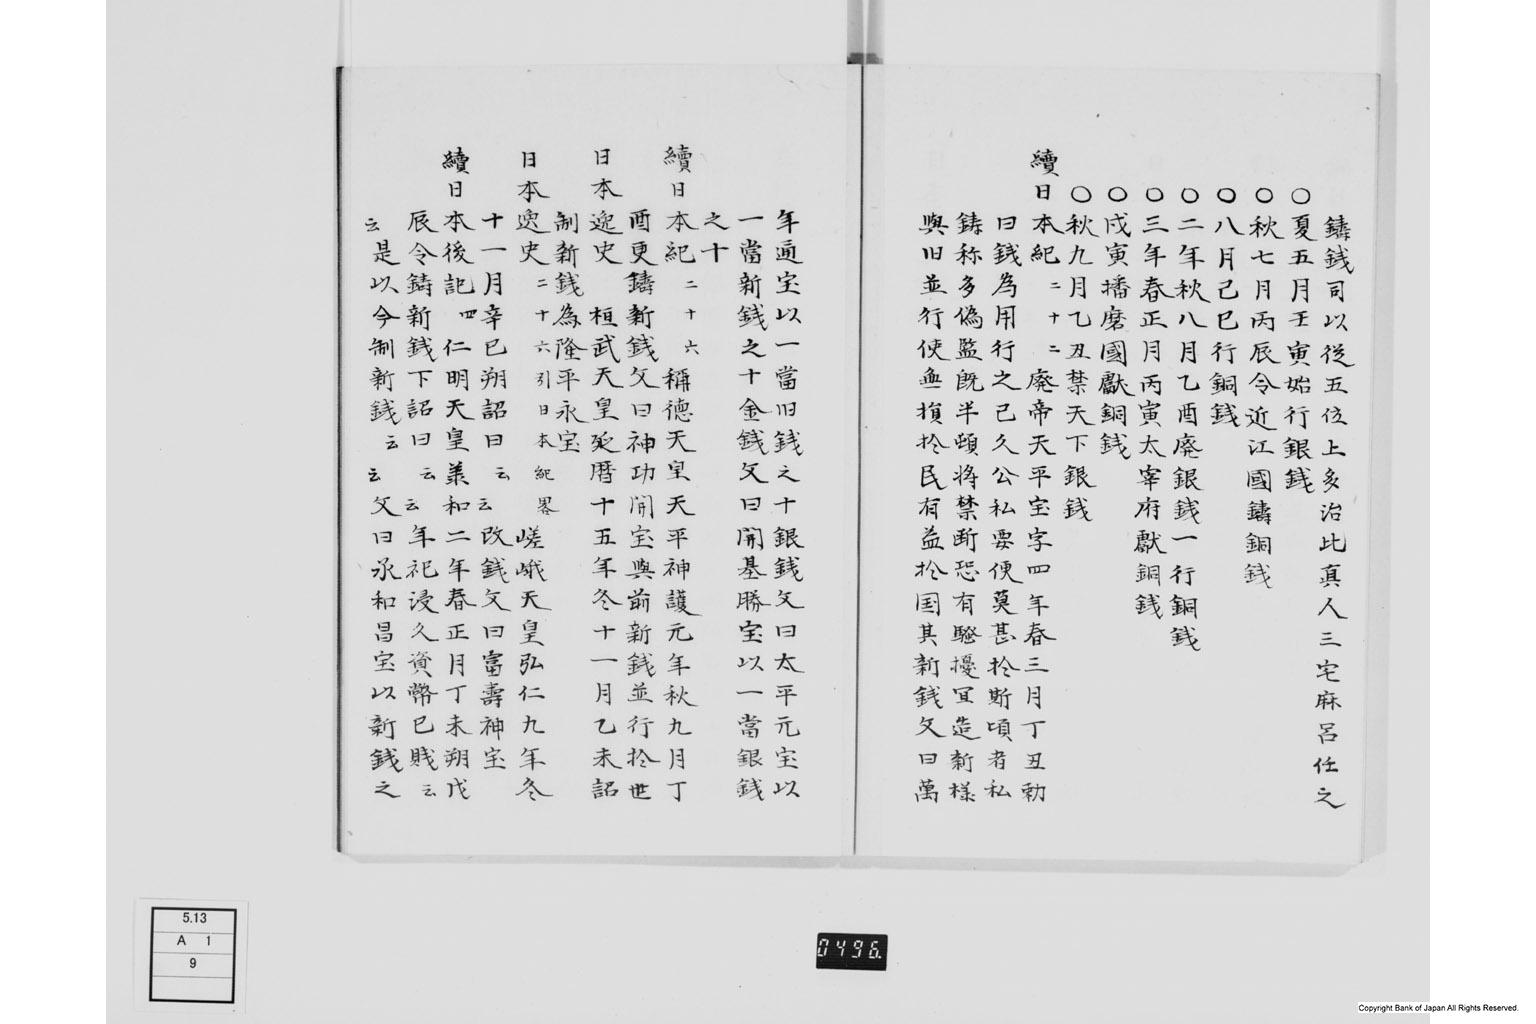 鑄銭司以從五位上多治比真人三宅麻呂任之
○夏五月壬寅始行銀銭
○秋七月丙辰令近江國鑄銅銭
○八月己巳行銅銭
○二年秋八月乙酉廃銀銭一行銅銭
○三年春正月丙寅太宰府獻銅銭
○戊寅播磨國獻銅銭
○秋九月乙丑禁天下銀銭
續日本紀二十二廃帝天平宝字四年春三月丁丑勅
曰銭為用行之已久公私要便莫甚於斯頃者私
鋳称多偽監既半頓将禁断恐有騒擾冝造新様
與旧並行使無損於民有益於国其新銭文曰萬
年通宝以一當旧銭之十銀銭文曰太平元宝以
一當新銭之十金銭文曰開基勝宝以一當銀銭
之十
續日本紀二十六稱德天皇天平神護元年秋九月丁
酉更鑄新銭文曰神功開宝與前新銭並行於世
日本逸史 桓武天皇延暦十五年冬十一月乙未詔
制新銭為隆平永宝
日本逸史二十六引日本紀畧嵯峨天皇弘仁九年冬
十一月辛巳朔詔曰云云改銭文曰富壽神宝
續日本後記四仁明天皇羕和二年春正月丁未朔戊
辰令鑄新銭下詔曰云云年祀浸久資幣已賎云
云是以今制新銭云云文曰承和昌宝以新銭之
5.13
A 1
9
0496.
Copyright Bank of Japan All Rights Reserved.